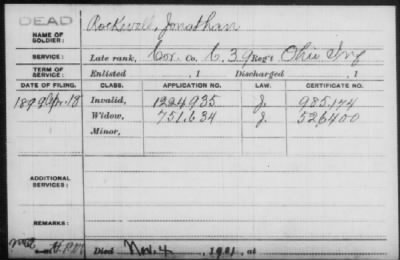 DEAD
NAME OF SOLDIER: Rockwell, Jonathan
SERVICE: Late rank, Cor. Co. C. 39 Reg't Ohio Inf
TERM OF SERVICE: Enlisted , 1 Discharged , 1
DATE OF FILING. CLASS. APPLICATION NO. LAW. CERTIFICATE NO.
Apr. 18 Invalid, 1224935 J. 985,174
Widow, 751,634 J. 526400
Minor,
ADDITIONAL SERVICES:
REMARKS:
Died Nov. 4, 1901, at